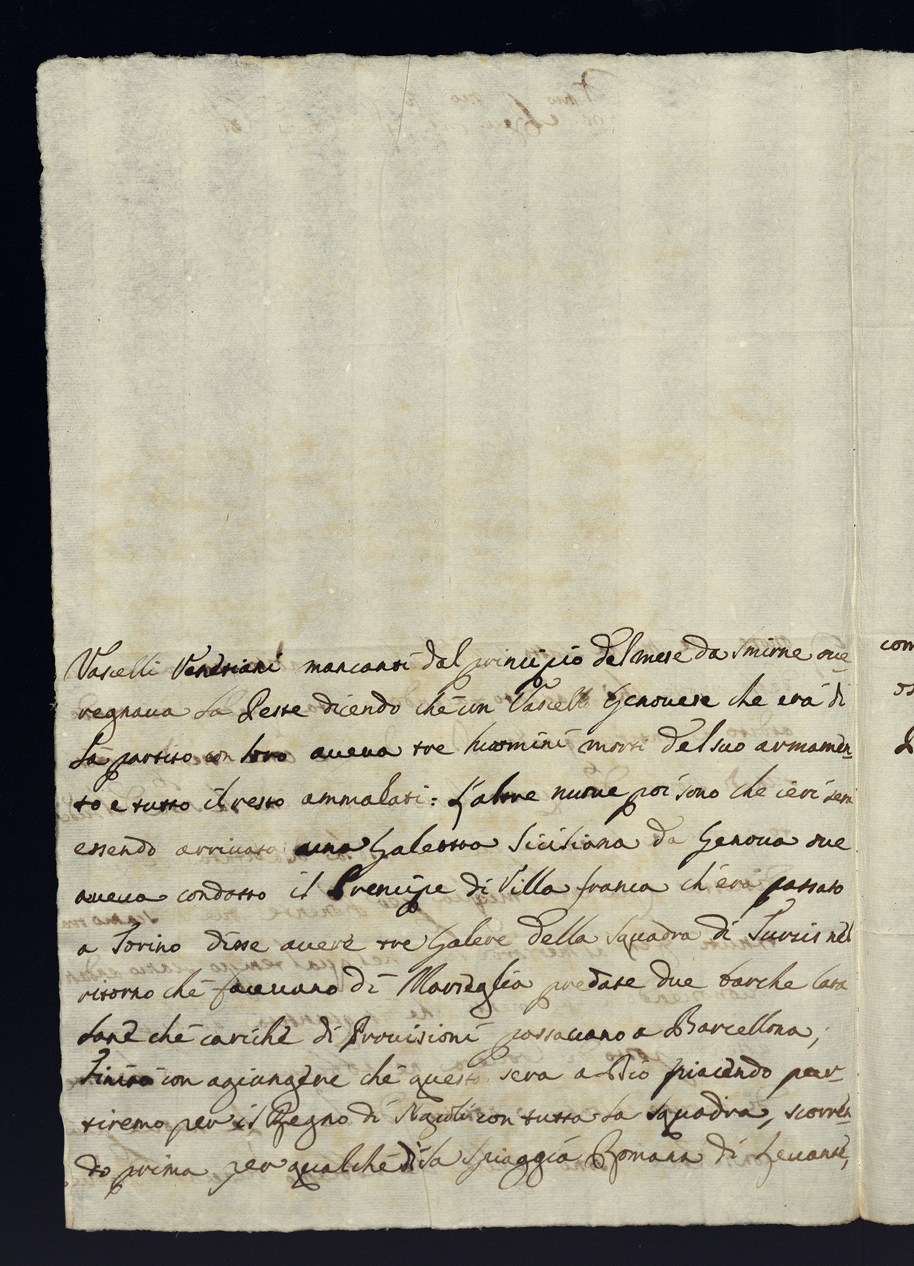 Vascelli Venetiani mancanti dal principio del mese da Smirne oue
regnaua la Peste dicendo che un Vascello Genouese che era di
là partito con loro aueua tre huomini morti del suo armamen-
to e tutto il resto ammalati: L'altre nuoue poi sono che ieri sera
essendo arriuata una Galeotta Siciliana da Genoua oue
aueua condotto il Prencipe di Villa franca ch'era passato
a Torino disse auere tre Galere della Squadra di Tursis nel
ritorno che faceuano di Marseglia predate due barche Cata
lane che cariche di Prouisioni passauano a Barcellona;
Finirò con agiungere che questa sera a Dio piacendo par-
tiremo per il Regno di Napoli con tutta la squadra, scorren-
do prima per qualche dì la Spiaggia Romana di Leuante,
con